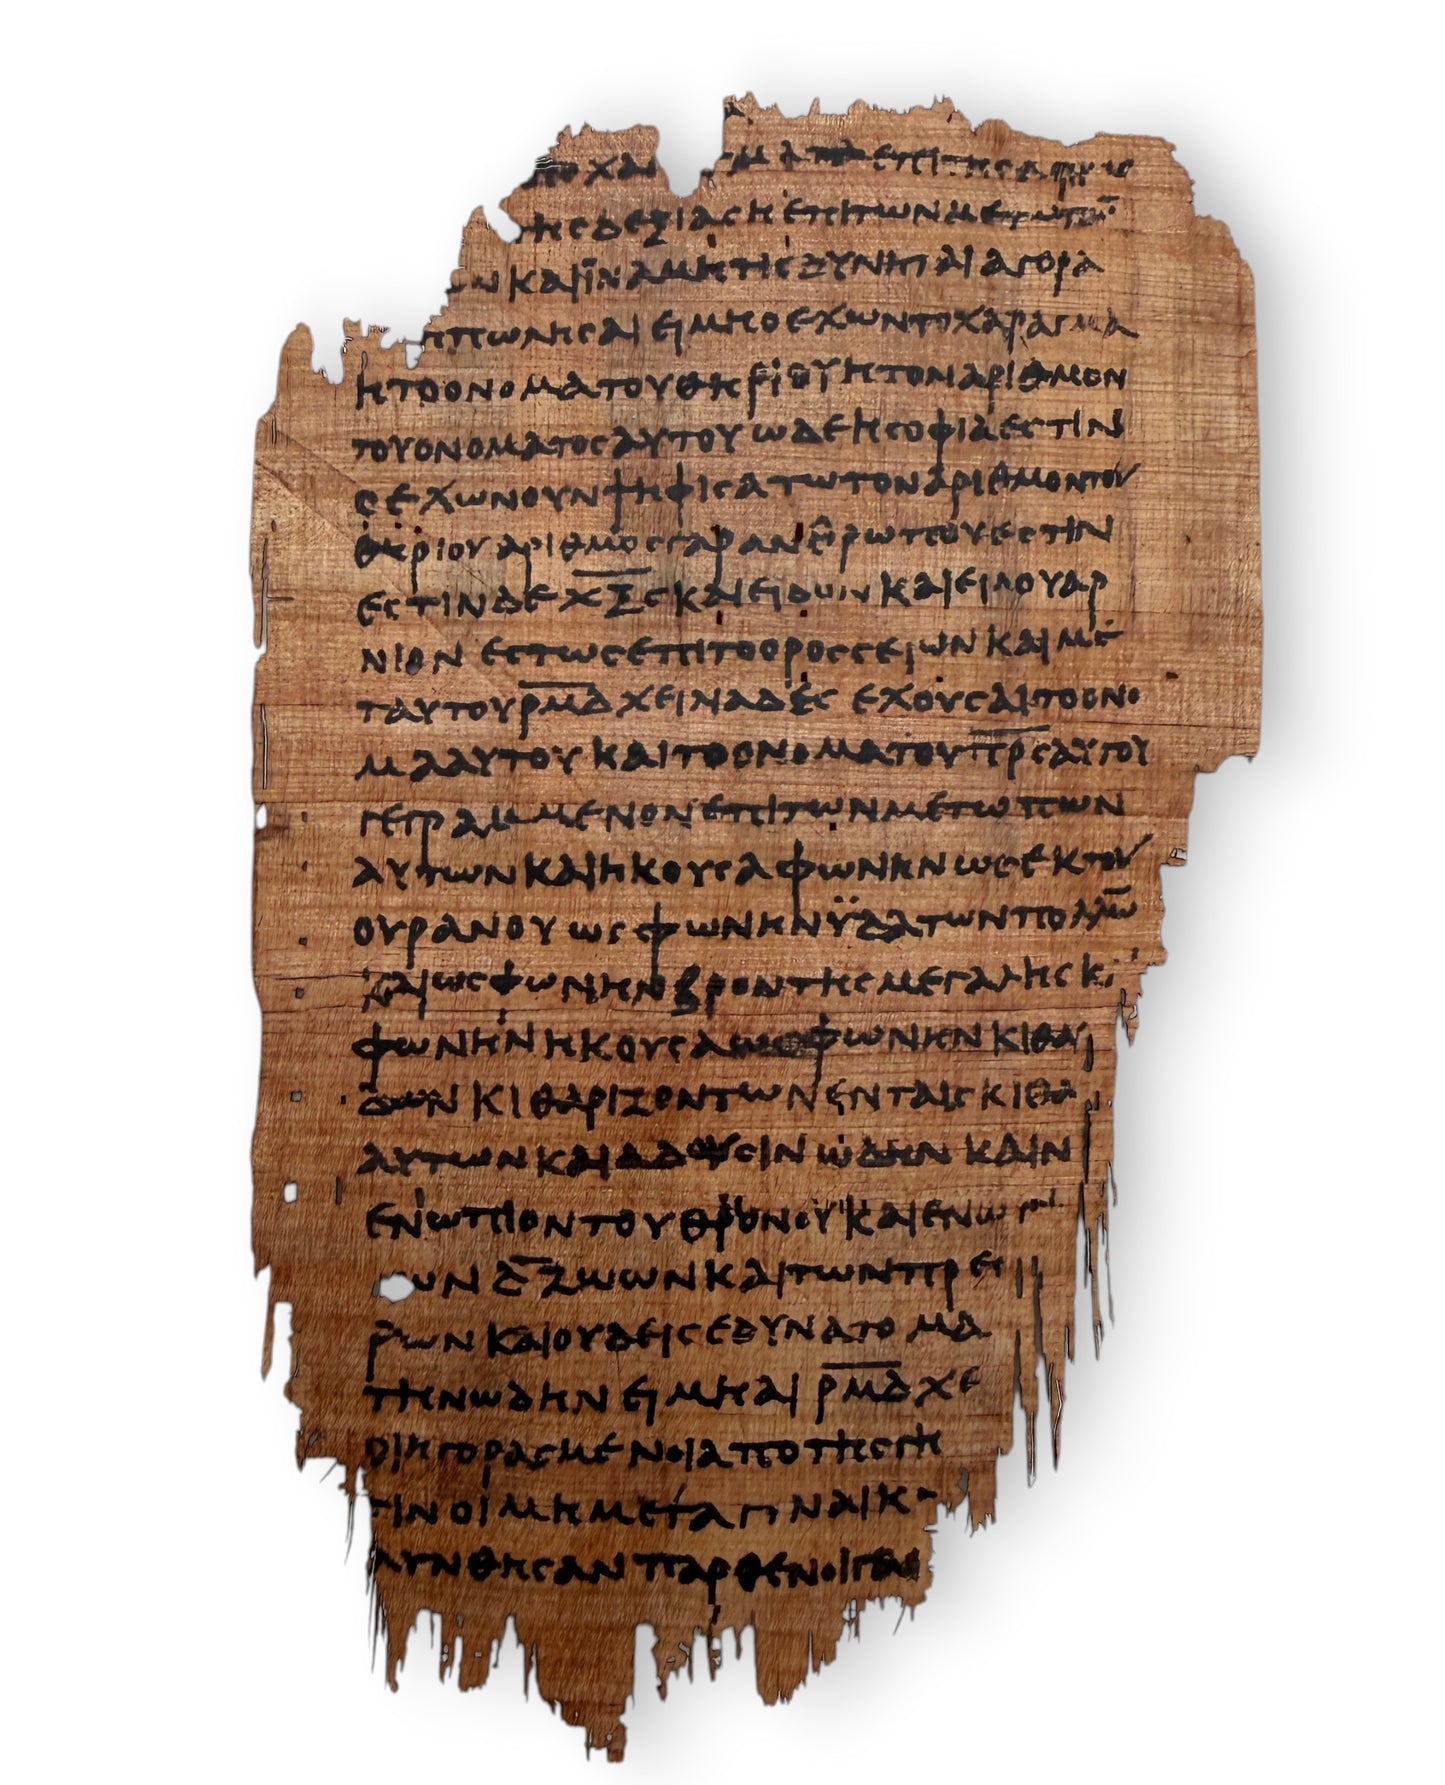 χαραγμα επι της χειρος
της δεξιας η επι των μετωπω̅
ων και ϊνα μη τις δυνηται αγορα
η πωλησαι ει μη ο εχων το χαραγμα
η το ονομα του θηριου η τον αριθμον
του ονοματος αυτου ωδε η σοφια εστιν
ο εχων ουν ψηφισατω τον αριθμον του
θηριου αριθμος γαρ ανθρωπου εστιν
εστιν δε χ̅ξ̅ς̅ και ειδον και ειδου αρ
νιον εστως επι το ορος σειων και με
τ αυτου ρ̅μ̅δ̅ χειλιαδες εχουσαι το ονο
μα αυτου και το ονομα του π̅ρ̅ς̅ αυτου
γεγραμμενον επι των μετωπων
αυτων και ηκουσα φωνην ως εκ του
ουρανου ως φωνην ϋδατων πολλω̅
και ως φωνην βροντης μεγαλης κ
φωνην ηκουσα ως φωνην κιθαρ
δων κιθαριζοντων εν ταις κιθα
αυτων και αδουσιν ωδην καιν
ενωπιον του θρονου και ενωπι
των δ̅ ζωων και των πρεσ
ρων και ουδεις εδυνατο μα
την ωδην ει μη αι ρ̅μ̅δ̅ χε
οι ηγορασμενοι απο της γη
εισιν οι μη μετα γυναικ
λυνθησαν παρθενοι γαρ